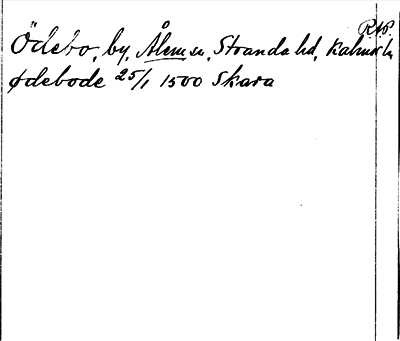 RAP.
Ödebo, by, Ålems sn, Stranda hd, Kalmar l.
Ødebode 25/1 1500 Skara